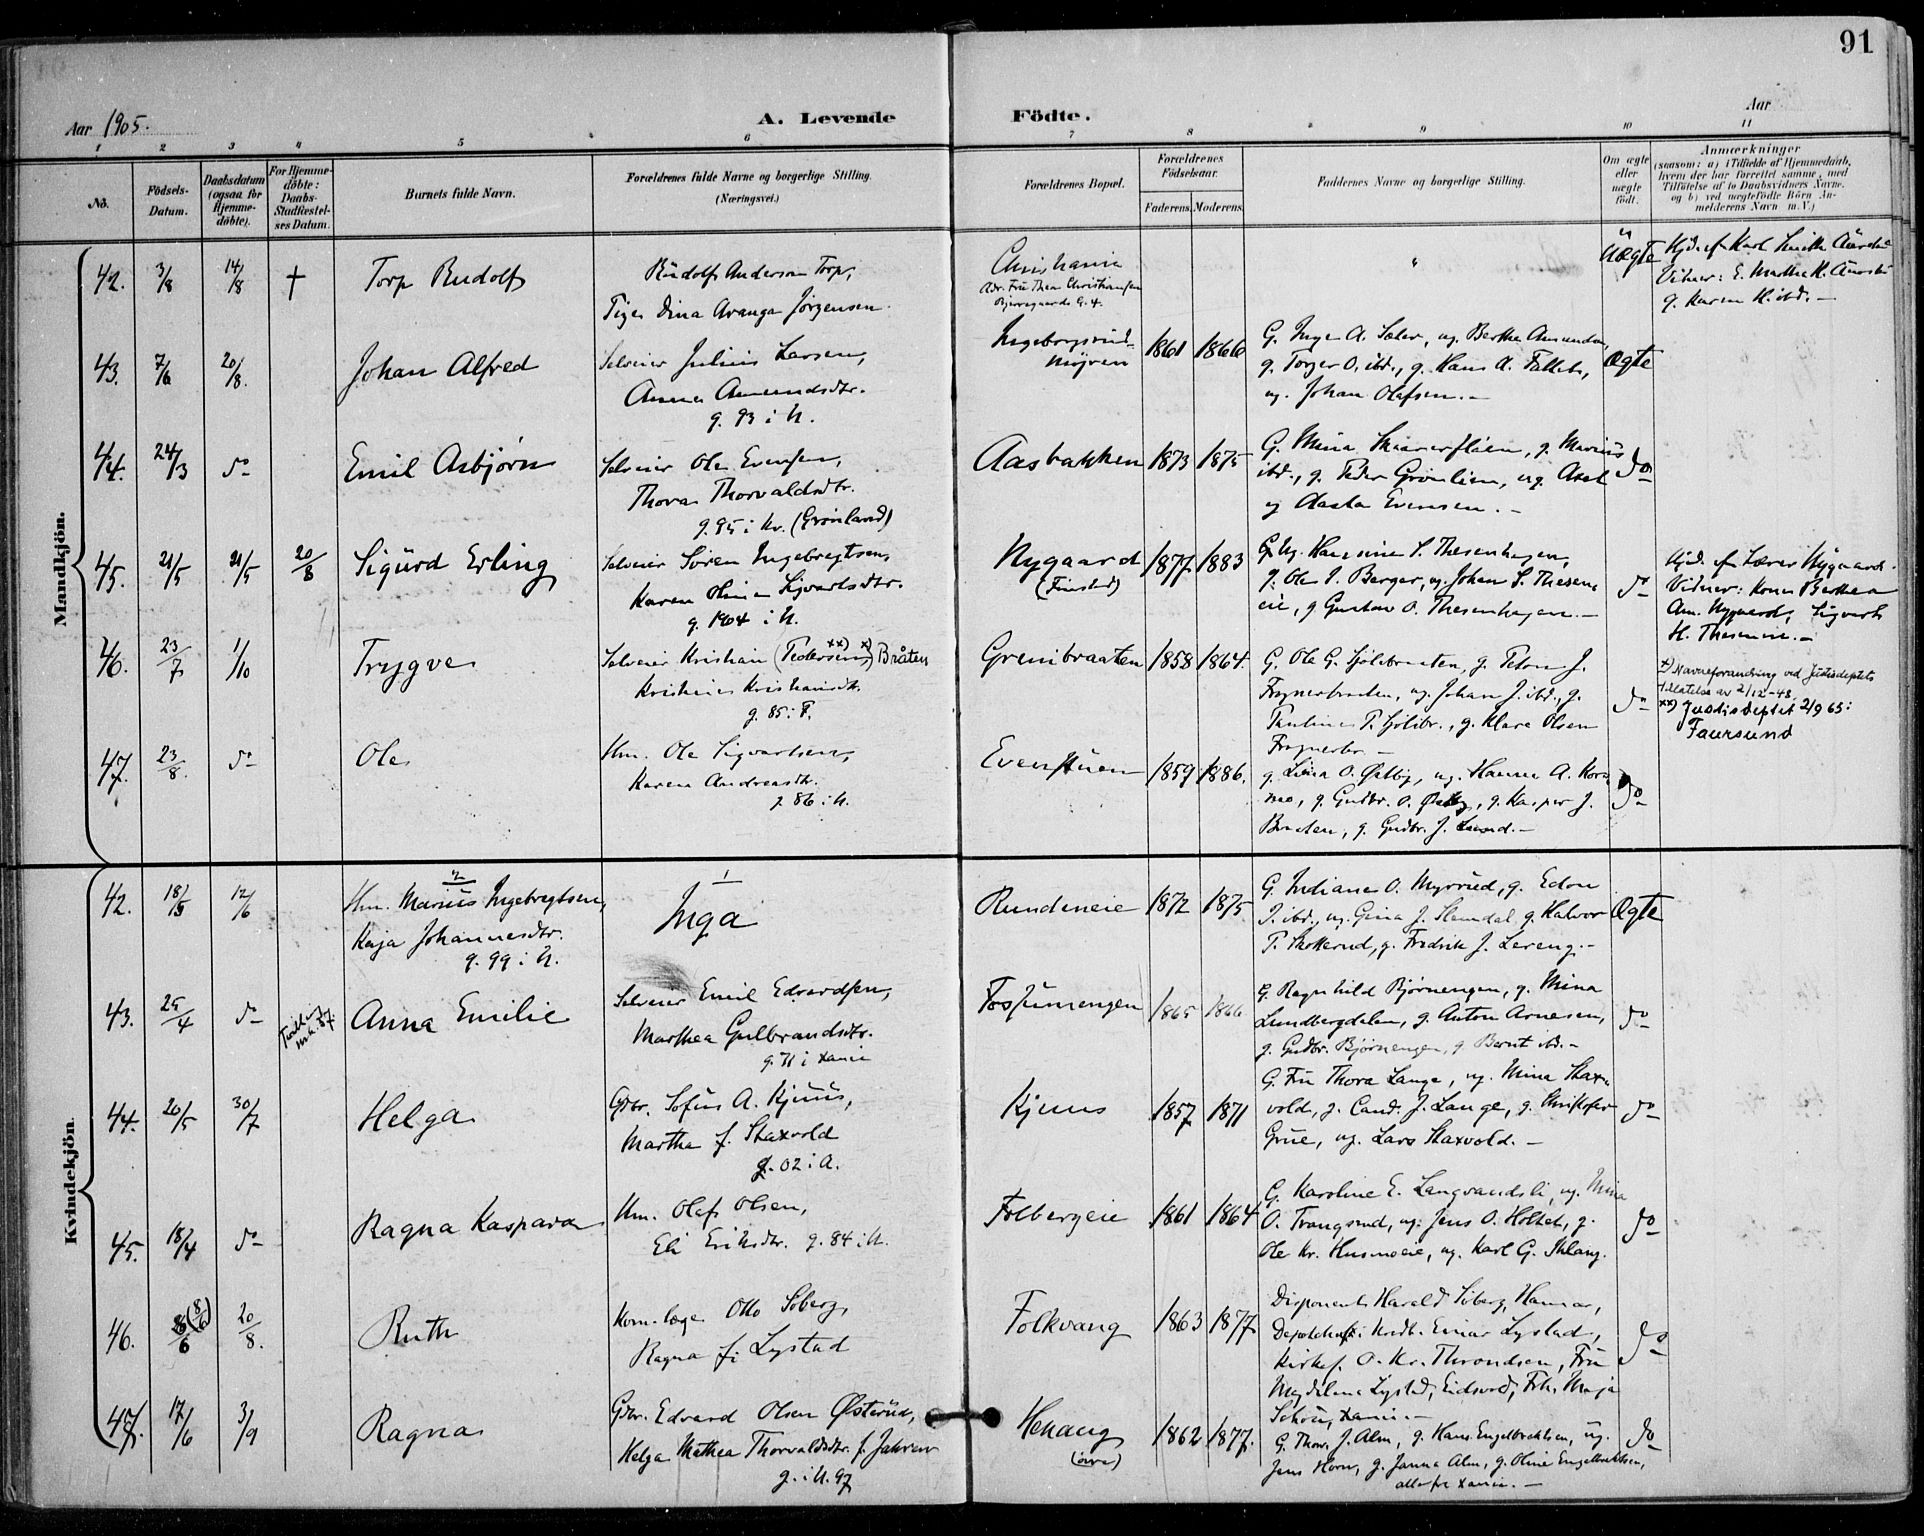 91
Aar 1905.
A. Levende Födte.
Aar
1 2 3 4 5 6 7 8 9 10 11
No.
Födsels-Datum.
Daabsdatum (ogsaa for Hjemme-döbte).
For Hjemme-döbte: Daabs-Stadfæstel-ses Datum.
Barnets fulde Navn.
Forældrenes fulde Navne og borgerlige Stilling.
(Næringsvei.)
Forældrenes Bopæl.
Forældrenes Födselsaar.
Faderens. Moderens.
Faddernes Navne og borgerlige Stilling.
Om ægte eller uægte födt.
Anmærkninger
(saasom: a) i Tilfælde af Hjemmedaab,
hvem der har forrettet samme, med
Tilföielse af to Daabsvidners Navne,
og b) ved uægtefödte Börn An-
melderens Navn m. V.)
Mandkjön.
42. 3/8 14/8 † Torp Rudolf
Rudolf Anderson Torp,
Pige Dina Aranga Jörgensen
Christiania
Adr. Fru Thea Christiansen
Bjerregaards G. 4.
"
Uægte
Hjd. af Karl
Vidner: E. Mathea K.
g. Karen H. ibd. -
43. 7/6 20/8. Johan Alfred
Selveier Julius Larsen,
Anna Amundsdtr.
g. 93 i U.
Ingeborgsrud-
möjren
1861 1866
G. Inge A. Sæter, ug. Berthe Amundsen,
g. Torger O. ibd., g. Hans A.
ug. Johan Olafsen. -
Ægte
44. 24/3 do Emil Asbjørn
Selveier Ole Evensen,
Thora Thorvaldsdtr.
g. 95 i Kr. (Grönland)
Aasbakken
1873 1875
G. Mina g. Marius
ibd., g. Peder Grönlien, ug. Axel
og Aasta Evensen. -
do
45. 21/5 21/5 20/8 Sigurd Erling
Selveier Sören Ingebregtsen,
Karen Oline Sigvartsdtr.
g. 1904 i U.
Nygaard
(Finstad)
1877 1883
G. Ug. Hansine S. Thesenhagen,
g. Ole I. Berger, ug. Johan S. Thesen-
eie, g. Gustav O. Thesenhagen. -
do
Hjd. af Lærer Nygaard.
Vidner: Kone Berthea
Am. Nygaard, Sigvart
H. Theseneie. -
46. 23/7 1/10 Trygve
Selveier Kristian (Pedersen) xx) x) Bråten
Kristine Kristiansdtr.
g. 85 i F.
Grenibraaten
1858 1864.
G. Ole G. Sjölibraaten, g. Peton J.
Frognerbraaten, ug. Johan J. ibd., g.
Pauline P. Sjölibr., g. Klara Olsen
Frognerbr. -
do
x) Navneforandring ved Justisdeptets
tillatelse av 2/12-48.
xx) Justisdeptet 2/9 65:
Faursund
47. 23/8. do Ole
Hm. Ole Sigvartsen,
Karen Andreasdtr.
g. 86 i U.
Evenstuen
1859 1886.
g. Lina O. Østby, ug. Hanna A. Kors-
mo, g. Gudbr. O. Østby, g. Kasper J.
Braaten, g. Gudbr. J. Lund. -
do
Kvindekjön.
42. 18/5 12/6
2
Hm. Marius Ingebregtsen,
Kaja Johannesdtr.
g. 99 i U.
1
Inga
Rundeneie
1872 1875
G. Indiane O. Myrrud, g. Edon
I. ibd., ug. Gina J. Slemdal g. Halvor
P. g. Fredrik J. Lereng. -
Ægte
43. 25/4 do Anna Emilie
Selveier Emil Edvardsen,
Marthea Gulbrandsdtr.
g. 91 i Xania
Fossumengen
1865 1866
G. Ragnhild Bjørnengen, g. Mina
Lundbergdalen, g. Anton Arnesen,
g. Gudbr. Bjørnengen, g. Bernt ibd. -
do
44. 20/5 30/7 Helga
Gbr. Sofus A. Kjuus,
Martha f. Staxvold
g. 02 i A.
Kjuus
1857 1871
G. Fru Thora Lange, ug. Mina Stax-
vold, g. Cand. J. Lange, g. Kristofer
Grue, ug. Lars Staxvold. -
do
45. 18/4 do Ragna Kaspara
Hm. Olaf Olsen,
Eli Eriksdtr. g. 84 i U.
Folbergeie
1861 1864
G. Karoline E. Langvandsli, ug. Mina
O. Trangsrud, ug. Jens O. Holtet, g.
Ole Kr. Husmoeie, ug. Karl G.
do
46. 8/6 (8/6) 20/8. Ruth
Kom. læge Otto Soberg,
Ragna f. Lystad
Folkvang
1863 1877
Disponent Harald Soberg, Hamar,
Einar Lystad,
Kirkes. O. Kr. Throndsen, Fru
Magdalena Lystad, Eidsvold, Frk. Maja
Xania. -
do
47. 17/6 3/9 Ragna
Gbr. Edvard Olsen Østerud,
Helga Mathea Thorvaldsdtr. f. Jahren
g. i U. 97
Henaug
(övre)
1862 1877.
G. Thorv. J. Alm, g. Hans Engelbrektsen, ug.
Jens Horn, g. Janna Alm, g. Oline Engelbrektsen,
alle fra Xania. -
do